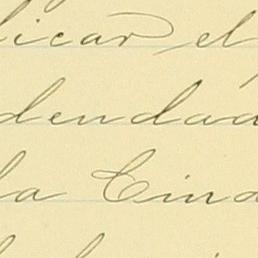 licar el
dendad
la Ciud